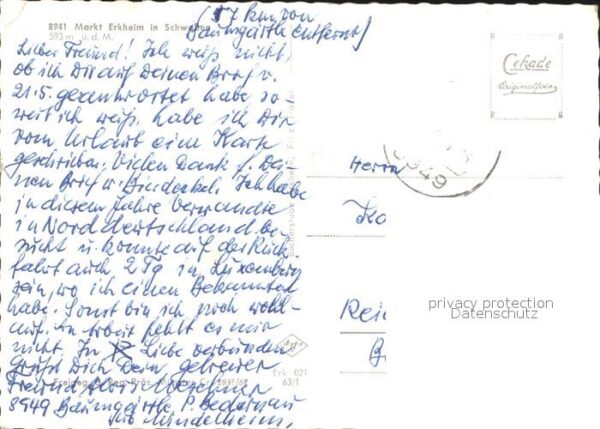 (17 km von
Baumgärtle entfernt)
8941 Markt Erkheim in Schwaben
593 m ü. d. M.
Lieber Freund! Ich weiß nicht
ob ich Dir auf Deinen Brief v.
21.5. geantwortet habe so-
weit ich weiß habe ich Dir
vom Urlaub eine Karte
geschrieben. Vielen Dank f. Dei-
nen Brief u. Ich habe
in diesem Jahre Verwandte
in Norddeutschland be-
sucht u. konnte auf der Rück-
fahrt auch 2 Tg in Luxemburg
sein, wo ich einen Bekannten
habe. Sonst bin ich noch wohl-
auf. An Arbeit fehlt es mir
nicht. In Liebe verbunden
grüßt Dich Dein getreuer
Freund Alois
8949 Baumgärtle P. Bedernau
üb Mindelheim,
Cekade
Originalfoto
8949
Herrn
Rei
privacy protection
Datenschutz
Erk 021
63/1